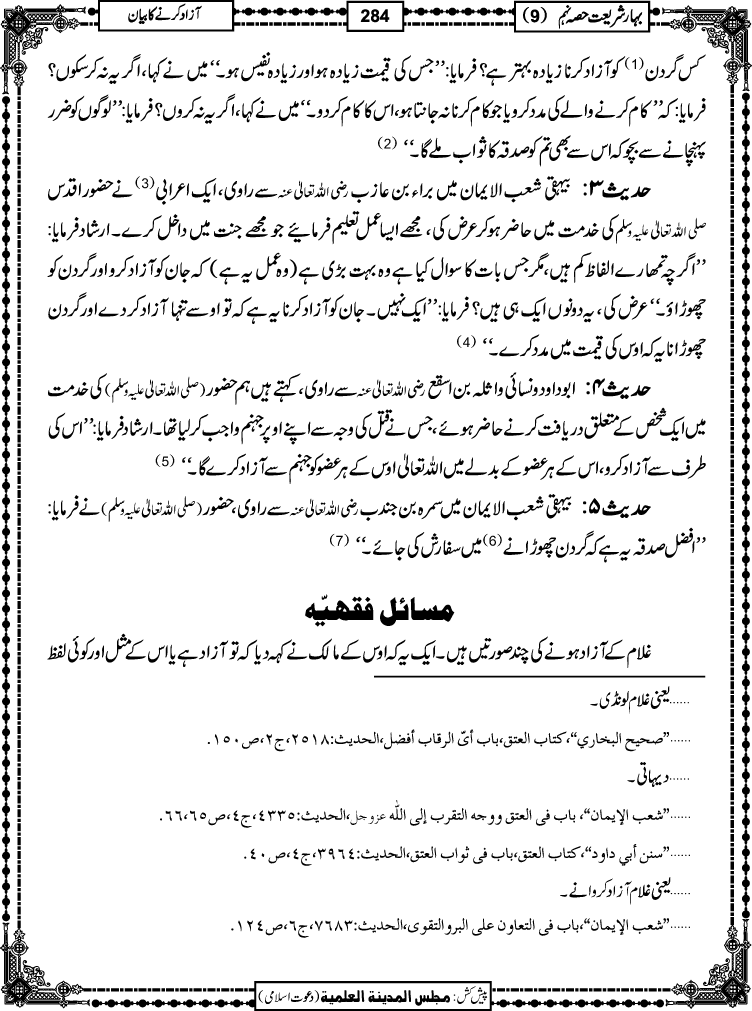 بہارِ شریعت حصہ نہم (9)
284
آزاد کرنے کا بیان
کس گردن (1) کو آزاد کرنا زیادہ بہتر ہے؟ فرمایا: ’’جس کی قیمت زیادہ ہو اور زیادہ نفیس ہو۔‘‘ میں نے کہا، اگر یہ نہ کر سکوں؟
فرمایا: کہ ’’ کام کرنے والے کی مدد کرو یا جو کام کرنا نہ جانتا ہو، اس کا کام کردو۔‘‘ میں نے کہا، اگر یہ نہ کروں؟ فرمایا: ’’لوگوں کو ضرر
پہنچانے سے بچو کہ اس سے بھی تم کو صدقہ کا ثواب ملے گا۔‘‘ (2)
حدیث ۳: بیہقی شعب الایمان میں براء بن عازب رضی اللہ تعالیٰ عنہ سے راوی، ایک اعرابی (3) نے حضور اقدس
صلی اللہ تعالیٰ علیہ وسلم کی خدمت میں حاضر ہوکر عرض کی، مجھے ایسا عمل تعلیم فرمائیے جو مجھے جنت میں داخل کرے۔ ارشاد فرمایا:
’’اگرچہ تمھارے الفاظ کم ہیں، مگر جس بات کا سوال کیا ہے وہ بہت بڑی ہے (وہ عمل یہ ہے) کہ جان کو آزاد کرو اور گردن کو
چھوڑاؤ۔‘‘ عرض کی، یہ دونوں ایک ہی ہیں؟ فرمایا: ’’ایک نہیں۔ جان کو آزاد کرنا یہ ہے کہ تو اوسے تنہا آزاد کردے اور گردن
چھوڑانا یہ کہ اوس کی قیمت میں مدد کرے۔‘‘ (4)
حدیث ۴: ابوداود و نسائی واثلہ بن اسقع رضی اللہ تعالیٰ عنہ سے راوی، کہتے ہیں ہم حضور (صلی اللہ تعالیٰ علیہ وسلم) کی خدمت
میں ایک شخص کے متعلق دریافت کرنے حاضر ہوئے، جس نے قتل کی وجہ سے اپنے اوپر جہنم واجب کرلیا تھا۔ ارشاد فرمایا: ’’اس کی
طرف سے آزاد کرو، اس کے ہر عضو کے بدلے میں اللہ تعالیٰ اوس کے ہر عضو کو جہنم سے آزاد کرے گا۔‘‘ (5)
حدیث ۵: بیہقی شعب الایمان میں سمرہ بن جندب رضی اللہ تعالیٰ عنہ سے راوی، حضور (صلی اللہ تعالیٰ علیہ وسلم) نے فرمایا:
’’افضل صدقہ یہ ہے کہ گردن چھوڑانے (6) میں سفارش کی جائے۔‘‘ (7)
مسائل فقهیّه
غلام کے آزاد ہونے کی چند صورتیں ہیں۔ ایک یہ کہ اوس کے مالک نے کہہ دیا کہ تو آزاد ہے یا اس کے مثل اور کوئی لفظ
......یعنی غلام لونڈی۔
......”صحيح البخاري“،كتاب العتق،باب أيّ الرقاب أفضل،الحديث:٢٥١٨،ج٢،ص١٥٠.
......دیہاتی۔
......”شعب الإيمان“،باب فى العتق ووجه التقرب إلى الله عزوجل،الحديث:٤٣٣٥،ج٤،ص٦٥،٦٦.
......”سنن أبي داود“،كتاب العتق،باب فى ثواب العتق،الحديث:٣٩٦٤،ج٤،ص٤٠.
......یعنی غلام آزاد کروانے۔
......”شعب الإيمان“،باب فى التعاون على البر والتقوى،الحديث:٧٦٨٣،ج٦،ص١٢٤.
پیش کش: مجلس المدينة العلمية (دعوت اسلامی)